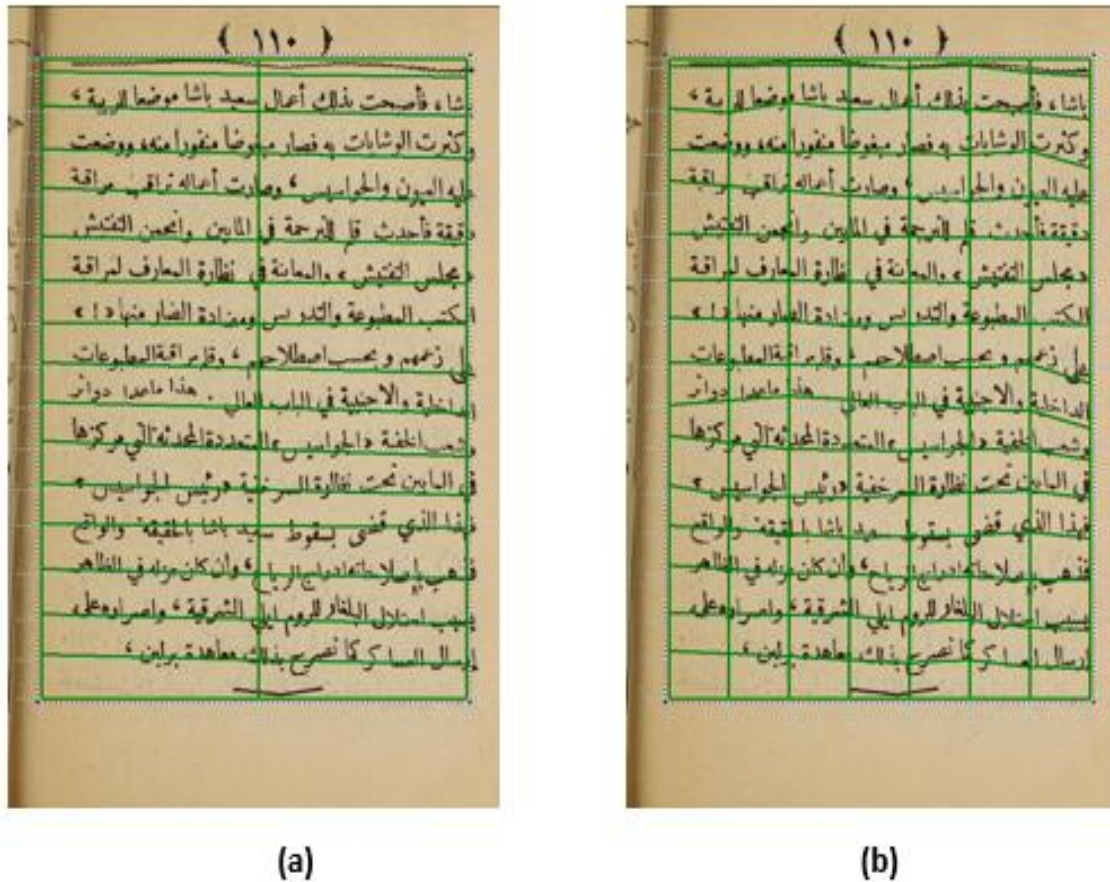 ( ١١٠ )
باشا ، فأصبحت بذلك أعمال سعيد باشا موضعا للريبة ،
وكثرت الوشايات به فصار مبغوضا منفورا منه، ووضعت
عليه العيون والجواسيس ، وصارت أعماله تراقب مراقبة
دقيقة فأحدث قلم الترجمة في المابين وانجمن التفتيش
«مجلس التفتيش» والمعاينة في نظارة المعارف لمراقبة
الكتب المطبوعة والتدريس ومضادة الضار منها «١»
على زعمهم وبحسب اصطلاحهم ، وقلم مراقبة المطبوعات
الداخلية والاجنبية في الباب العالي . هذا ماعدا دوائر
وشعب الخفية «الجواسيس» المتعددة المحدثة التي مركزها
في المابين تحت نظارة السرخفية «رئيس الجواسيس»
فهذا الذي قضى بسقوط سعيد باشا بالحقيقة والواقع
فذهب بإصلاحاته ادراج الرياح ، وان كان عزله في الظاهر
بسبب احتلال البلغار للروم ايلي الشرقية ، واصراره على
ارسال العساكر كما بذلك معاهدة برلين ،
(a)
( ١١٠ )
باشا ، فأصبحت بذلك أعمال سعيد باشا موضعا للريبة ،
وكثرت الوشايات به فصار مبغوضا منفورا منه، ووضعت
عليه العيون والجواسيس ، وصارت أعماله تراقب مراقبة
دقيقة فأحدث قلم الترجمة في المابين وانجمن التفتيش
«مجلس التفتيش» والمعاينة في نظارة المعارف لمراقبة
الكتب المطبوعة والتدريس ومضادة الضار منها «١»
على زعمهم وبحسب اصطلاحهم ، وقلم مراقبة المطبوعات
الداخلية والاجنبية في الباب العالي . هذا ماعدا دوائر
وشعب الخفية «الجواسيس» المتعددة المحدثة التي مركزها
في المابين تحت نظارة السرخفية «رئيس الجواسيس»
فهذا الذي قضى بسقوط سعيد باشا بالحقيقة والواقع
فذهب بإصلاحاته ادراج الرياح ، وان كان عزله في الظاهر
بسبب احتلال البلغار للروم ايلي الشرقية ، واصراره على
ارسال العساكر كما بذلك معاهدة برلين ،
(b)